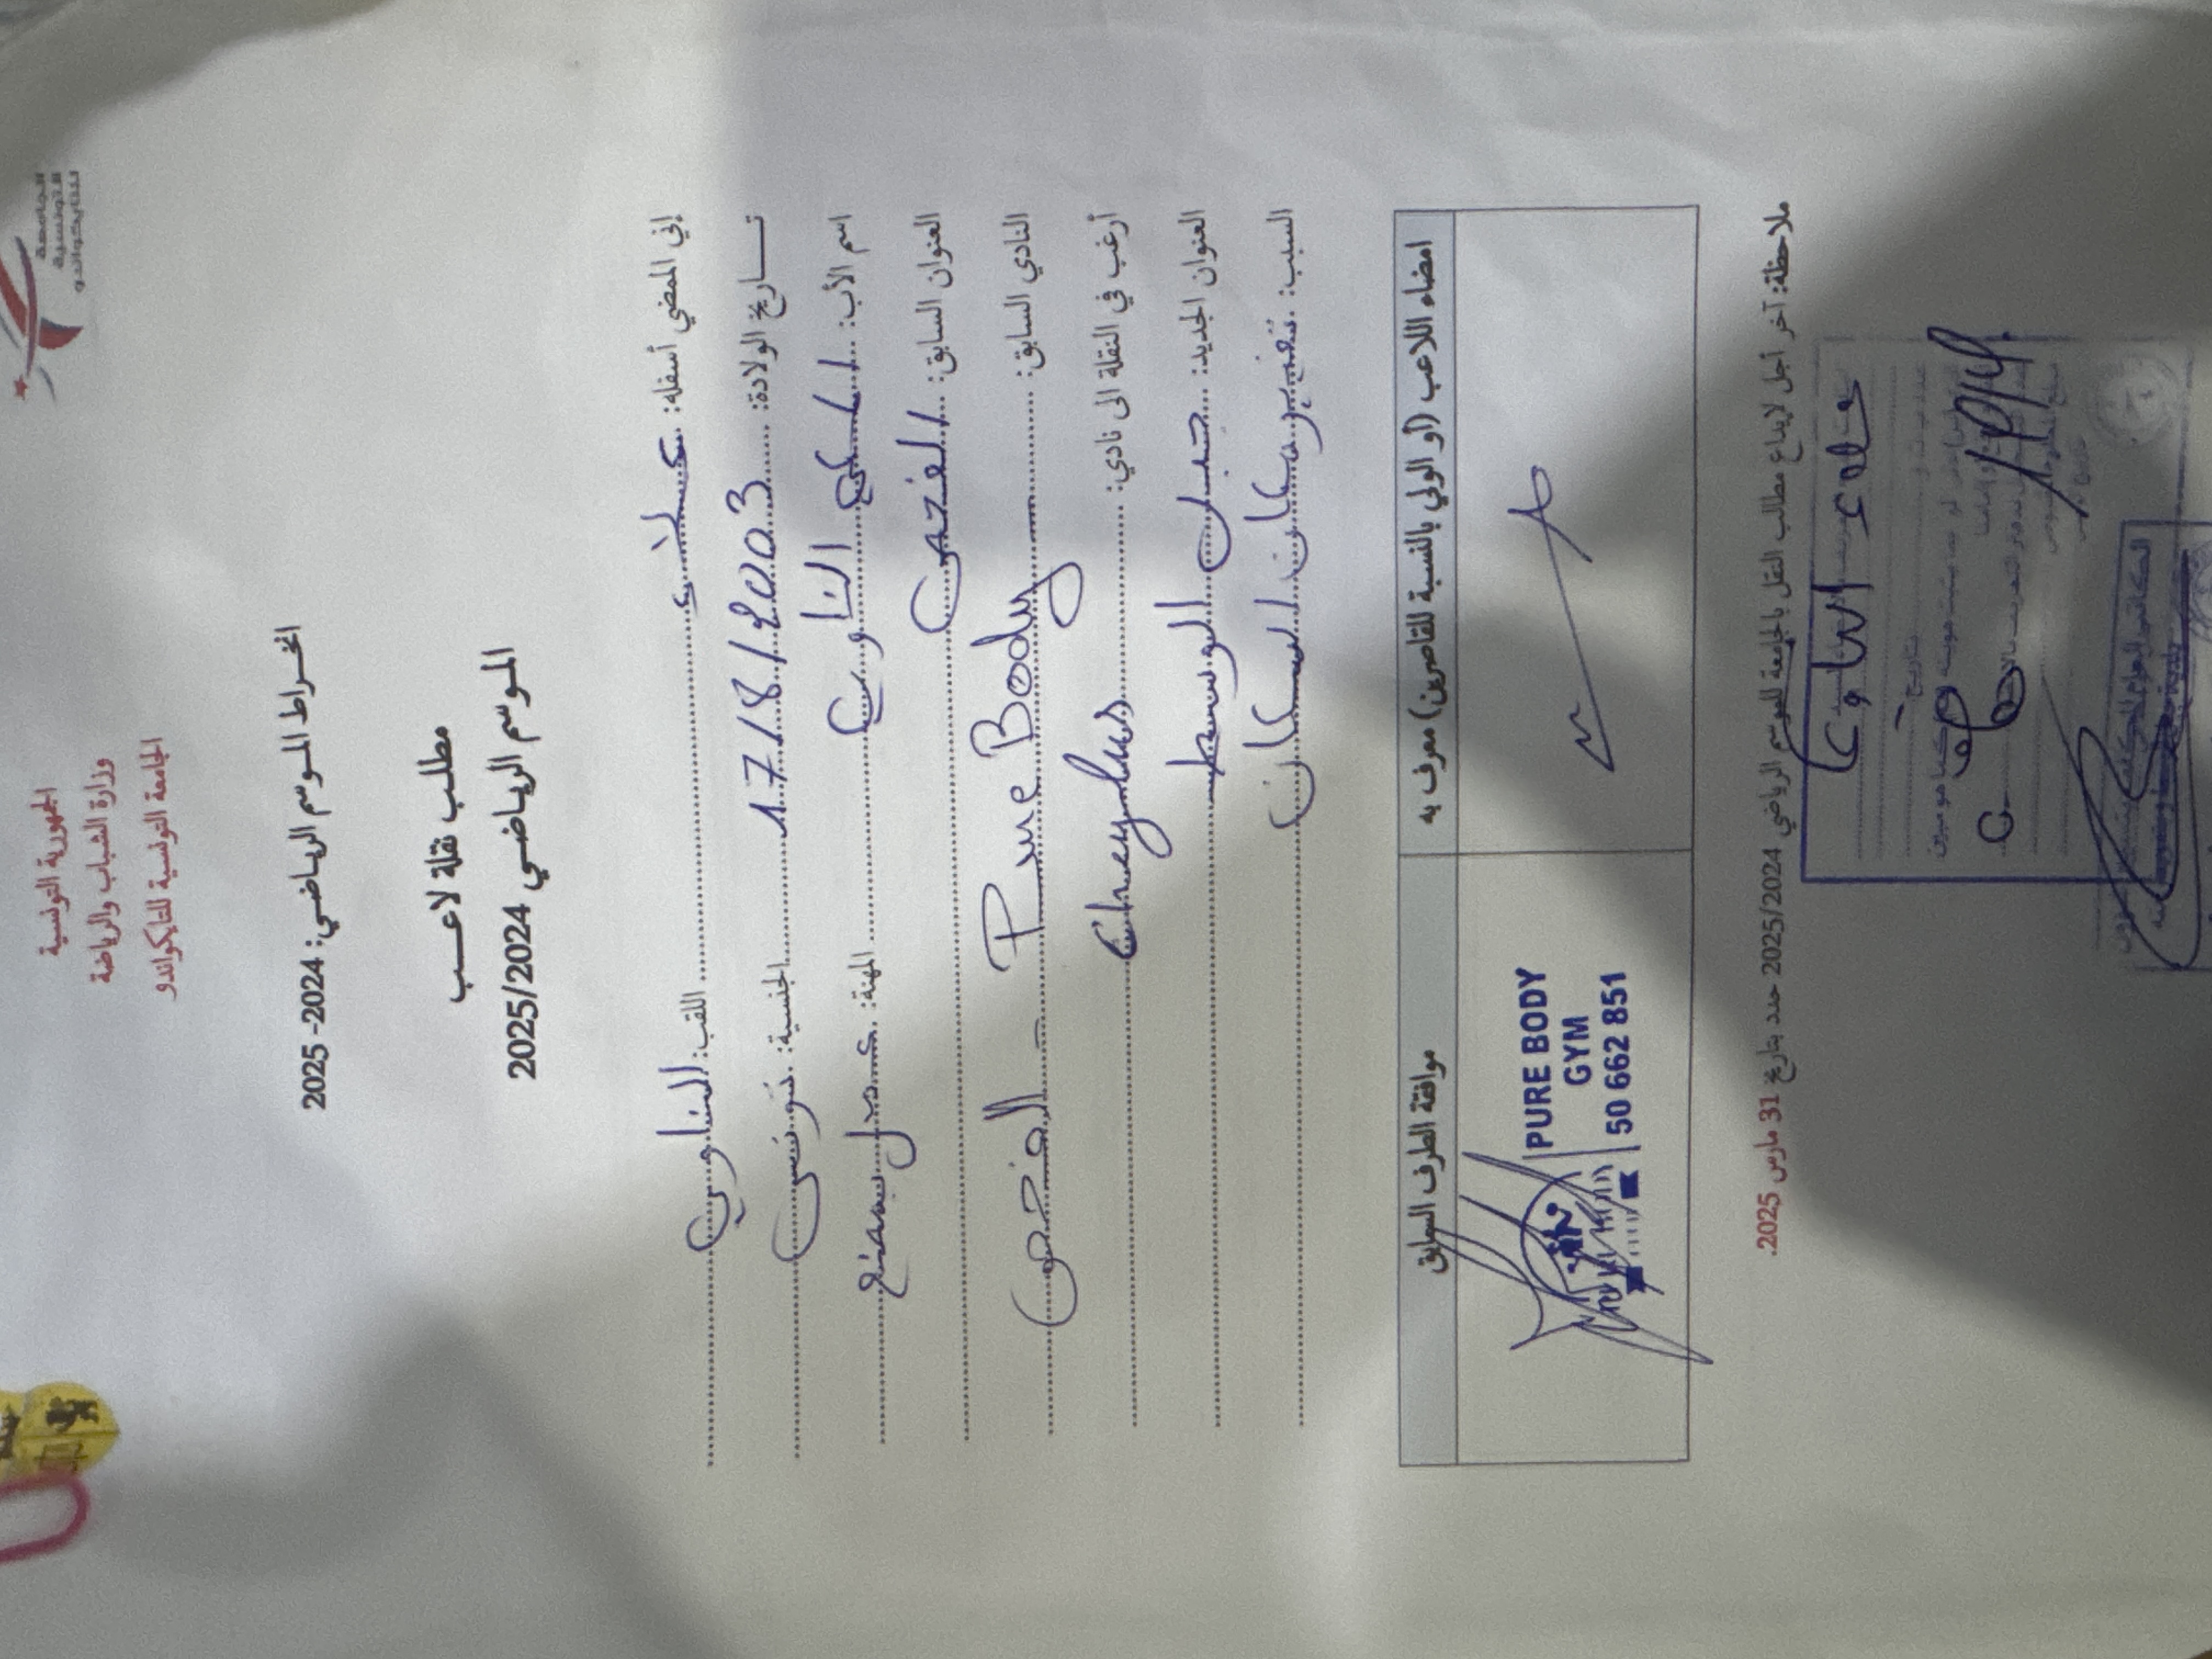 الجامعة
التونسية
للتايكواندو
الجمهورية التونسية
وزارة الشباب والرياضة
الجامعة التونسية للتايكواندو
انخراط الموسم الرياضي: 2024- 2025
مطلب نقلة لاعب
الموسم الرياضي 2025/2024
إني الممضي أسفله: علاء اللقب: المناوي
تاريخ الولادة: 17/8/2003 الجنسية: تونسي
اسم الأب: المناوي المهنة:
العنوان السابق: الفحص
النادي السابق: Pure Body الفحص
أرغب في النقلة الى نادي: Cheylus
العنوان الجديد: جبل الوسط
السبب: تغيير مكان السكان
امضاء اللاعب (أو الولي بالنسبة للقاصرين) معرف به
موافقة الطرف السابق
PURE BODY
GYM
50 662 851
ملاحظة: آخر أجل لإيداع مطالب النقل بالجامعة للموسم الرياضي 2025/2024 حدد بتاريخ 31 مارس 2025.
علاء المناوي
بتاريخ